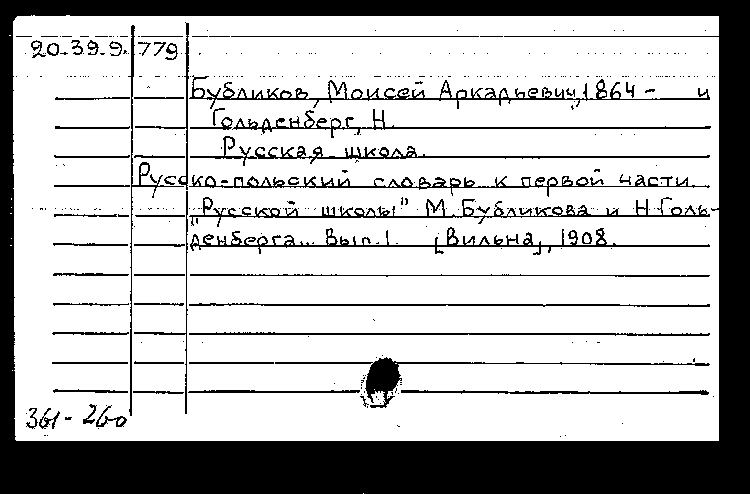 20.39.9. 779
Бубликов, Моисей Аркадьевич, 1864 - и
Гольденберг, Н.
Русская школа.
Русско-польский словарь к первой части
"Русской школы" М. Бубликова и Н. Голь-
денберга... Вып. 1. [Вильна], 1908.
361-260